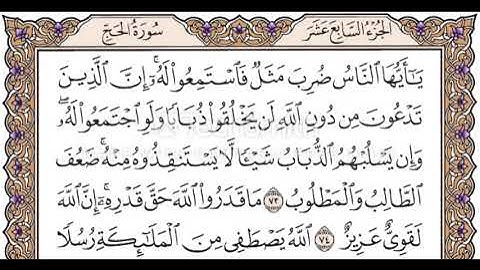 سُورَةُ الحَجِّ
الجُزْءُ السَّابِعَ عَشَرَ
يَـٰٓأَيُّهَا ٱلنَّاسُ ضُرِبَ مَثَلٌ فَٱسْتَمِعُوا۟ لَهُۥٓ ۚ إِنَّ ٱلَّذِينَ
تَدْعُونَ مِن دُونِ ٱللَّهِ لَن يَخْلُقُوا۟ ذُبَابًا وَلَوِ ٱجْتَمَعُوا۟ لَهُۥ ۖ
وَإِن يَسْلُبْهُمُ ٱلذُّبَابُ شَيْـًٔا لَّا يَسْتَنقِذُوهُ مِنْهُ ۚ ضَعُفَ
ٱلطَّالِبُ وَٱلْمَطْلُوبُ ٧٣ مَا قَدَرُوا۟ ٱللَّهَ حَقَّ قَدْرِهِۦٓ ۗ إِنَّ ٱللَّهَ
لَقَوِىٌّ عَزِيزٌ ٧٤ ٱللَّهُ يَصْطَفِى مِنَ ٱلْمَلَـٰٓئِكَةِ رُسُلًا